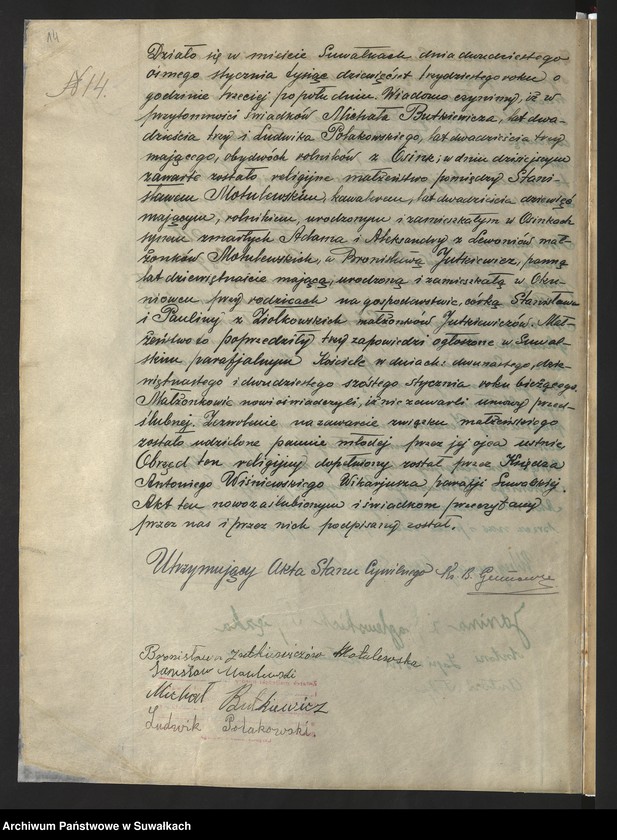 14
№ 14.
Działo się w mieście Suwałkach dnia dwudziestego
ósmego stycznia tysiąc dziewięćset trzydziestego roku o
godzinie trzeciej po południu. Wiadomo czynimy, iż w
przytomności świadków Michała Butkiewicza, lat dwa-
dzieścia trzy i Ludwika Połakowskiego, lat dwadzieścia trzy
mającego, obydwóch rolników z Osink; w dniu dzisiejszym
zawarte zostało religijne małżeństwo pomiędzy Stani-
sławem Motulewskim, kawalerem, lat dwadzieścia dziewięć
mającym, rolnikiem, urodzonym i zamieszkałym w Osinkach
synem zmarłych Adama i Aleksandry z Lewoniów mał-
żonków Motulewskich, a Bronisławą Jutkiewicz, panną
lat dziewiętnaście mającą, urodzoną i zamieszkałą w Oku-
niowcu przy rodzicach na gospodarstwie, córką Stanisława
i Pauliny z Ziółkowskich małżonków Jutkiewiczów. Mał-
żeństwo to poprzedziły trzy zapowiedzi ogłoszone w Suwal-
skim parafjalnym Kościele w dniach: dwunastego, dzie-
więtnastego i dwudziestego szóstego stycznia roku bieżącego.
Małżonkowie nowi oświadczyli, iż nie zawarli umowy przed-
ślubnej. Zezwolenie na zawarcie związku małżeńskiego
zostało udzielone pannie młodej przez jej ojca ustnie
Obrzęd ten religijny dopełniony został przez Księdza
Antoniego Wiśniewskiego Wikarjusza parafji Suwalskiej.
Akt ten nowozaślubionym i świadkom przeczytany
przez nas i przez nich podpisany został.
Utrzymujący Akta Stanu Cywilnego Ks. B.
Bronisława Jutkiewiczów Motulewska
Stanisław Motulewski
Michał Butkiewicz
Ludwik Połakowski.
Archiwum Państwowe w Suwałkach